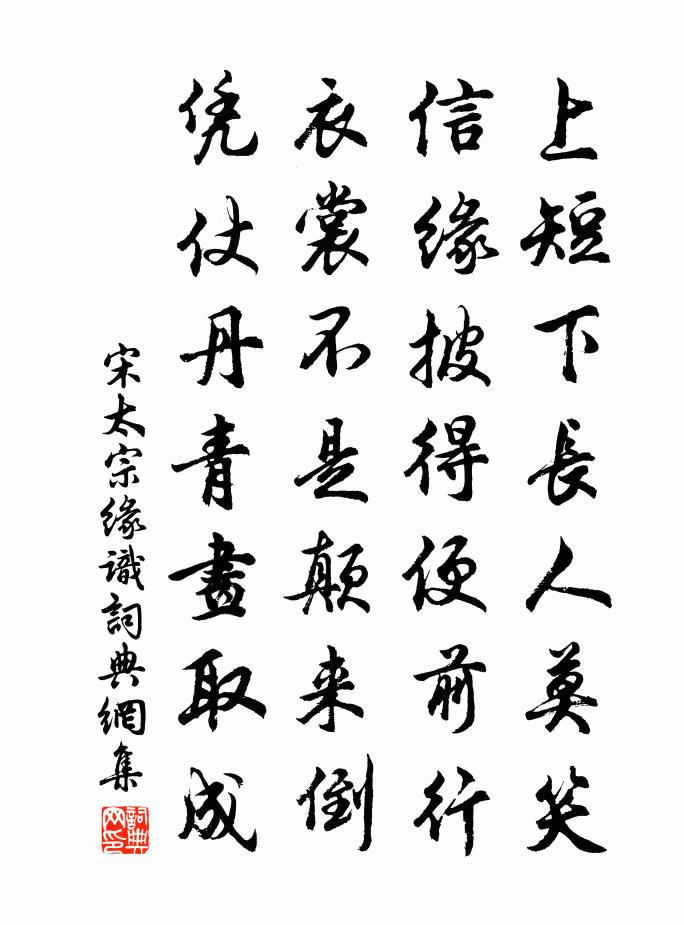 上短下長人莫笑
信緣披得便前行
衣裳不是顛来倒
凭仗丹青畫取成
宋太宗緣識詞典網集
詞典
网印